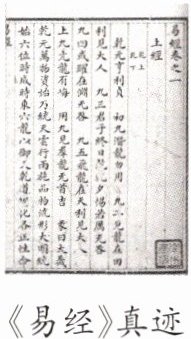 易經卷之一
上經
乾下
乾上
乾元亨利貞 初九潛龍勿用 九二見龍在田
利見大人 九三君子終日乾乾夕惕若厲无咎
九四或躍在淵无咎 九五飛龍在天利見大人
上九亢龍有悔 用九見羣龍无首吉 彖曰大哉
乾元萬物資始乃統天雲行雨施品物流形大明終
始六位時成時乘六龍以御天乾道變化各正性命
《易经》真迹